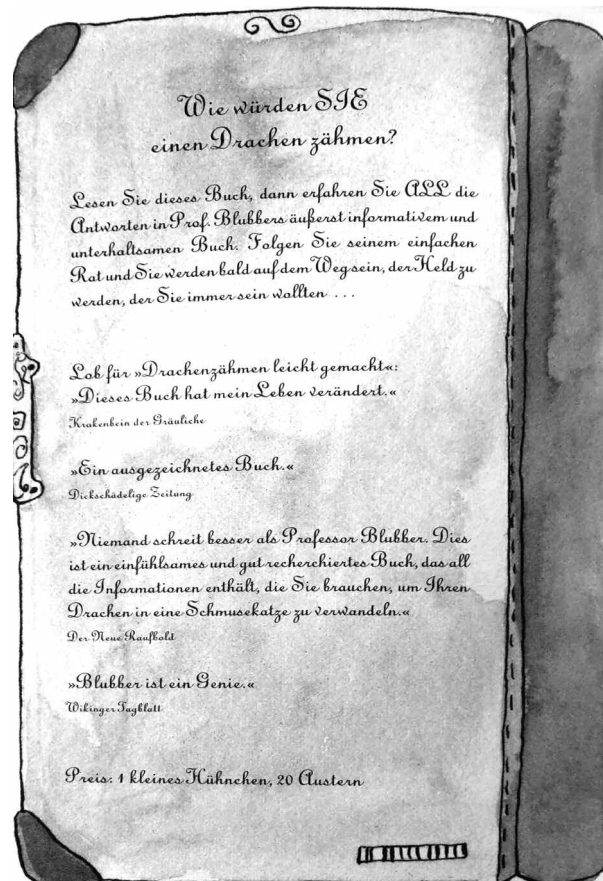 Wie würden SIE
einen Drachen zähmen?
Lesen Sie dieses Buch, dann erfahren Sie ALL die
Antworten in Prof. Blubbers äußerst informativem und
unterhaltsamen Buch. Folgen Sie seinem einfachen
Rat und Sie werden bald auf dem Weg sein, der Held zu
werden, der Sie immer sein wollten ...
Lob für »Drachenzähmen leicht gemacht«:
»Dieses Buch hat mein Leben verändert.«
Krakenbein der Gräuliche
»Ein ausgezeichnetes Buch.«
Dickschädelige Zeitung
»Niemand schreit besser als Professor Blubber. Dies
ist ein einfühlsames und gut recherchiertes Buch, das all
die Informationen enthält, die Sie brauchen, um Ihren
Drachen in eine Schmusekatze zu verwandeln.«
Der Neue Raufbold
»Blubber ist ein Genie.«
Wikinger Tagblatt
Preis: 1 kleines Hühnchen, 20 Austern